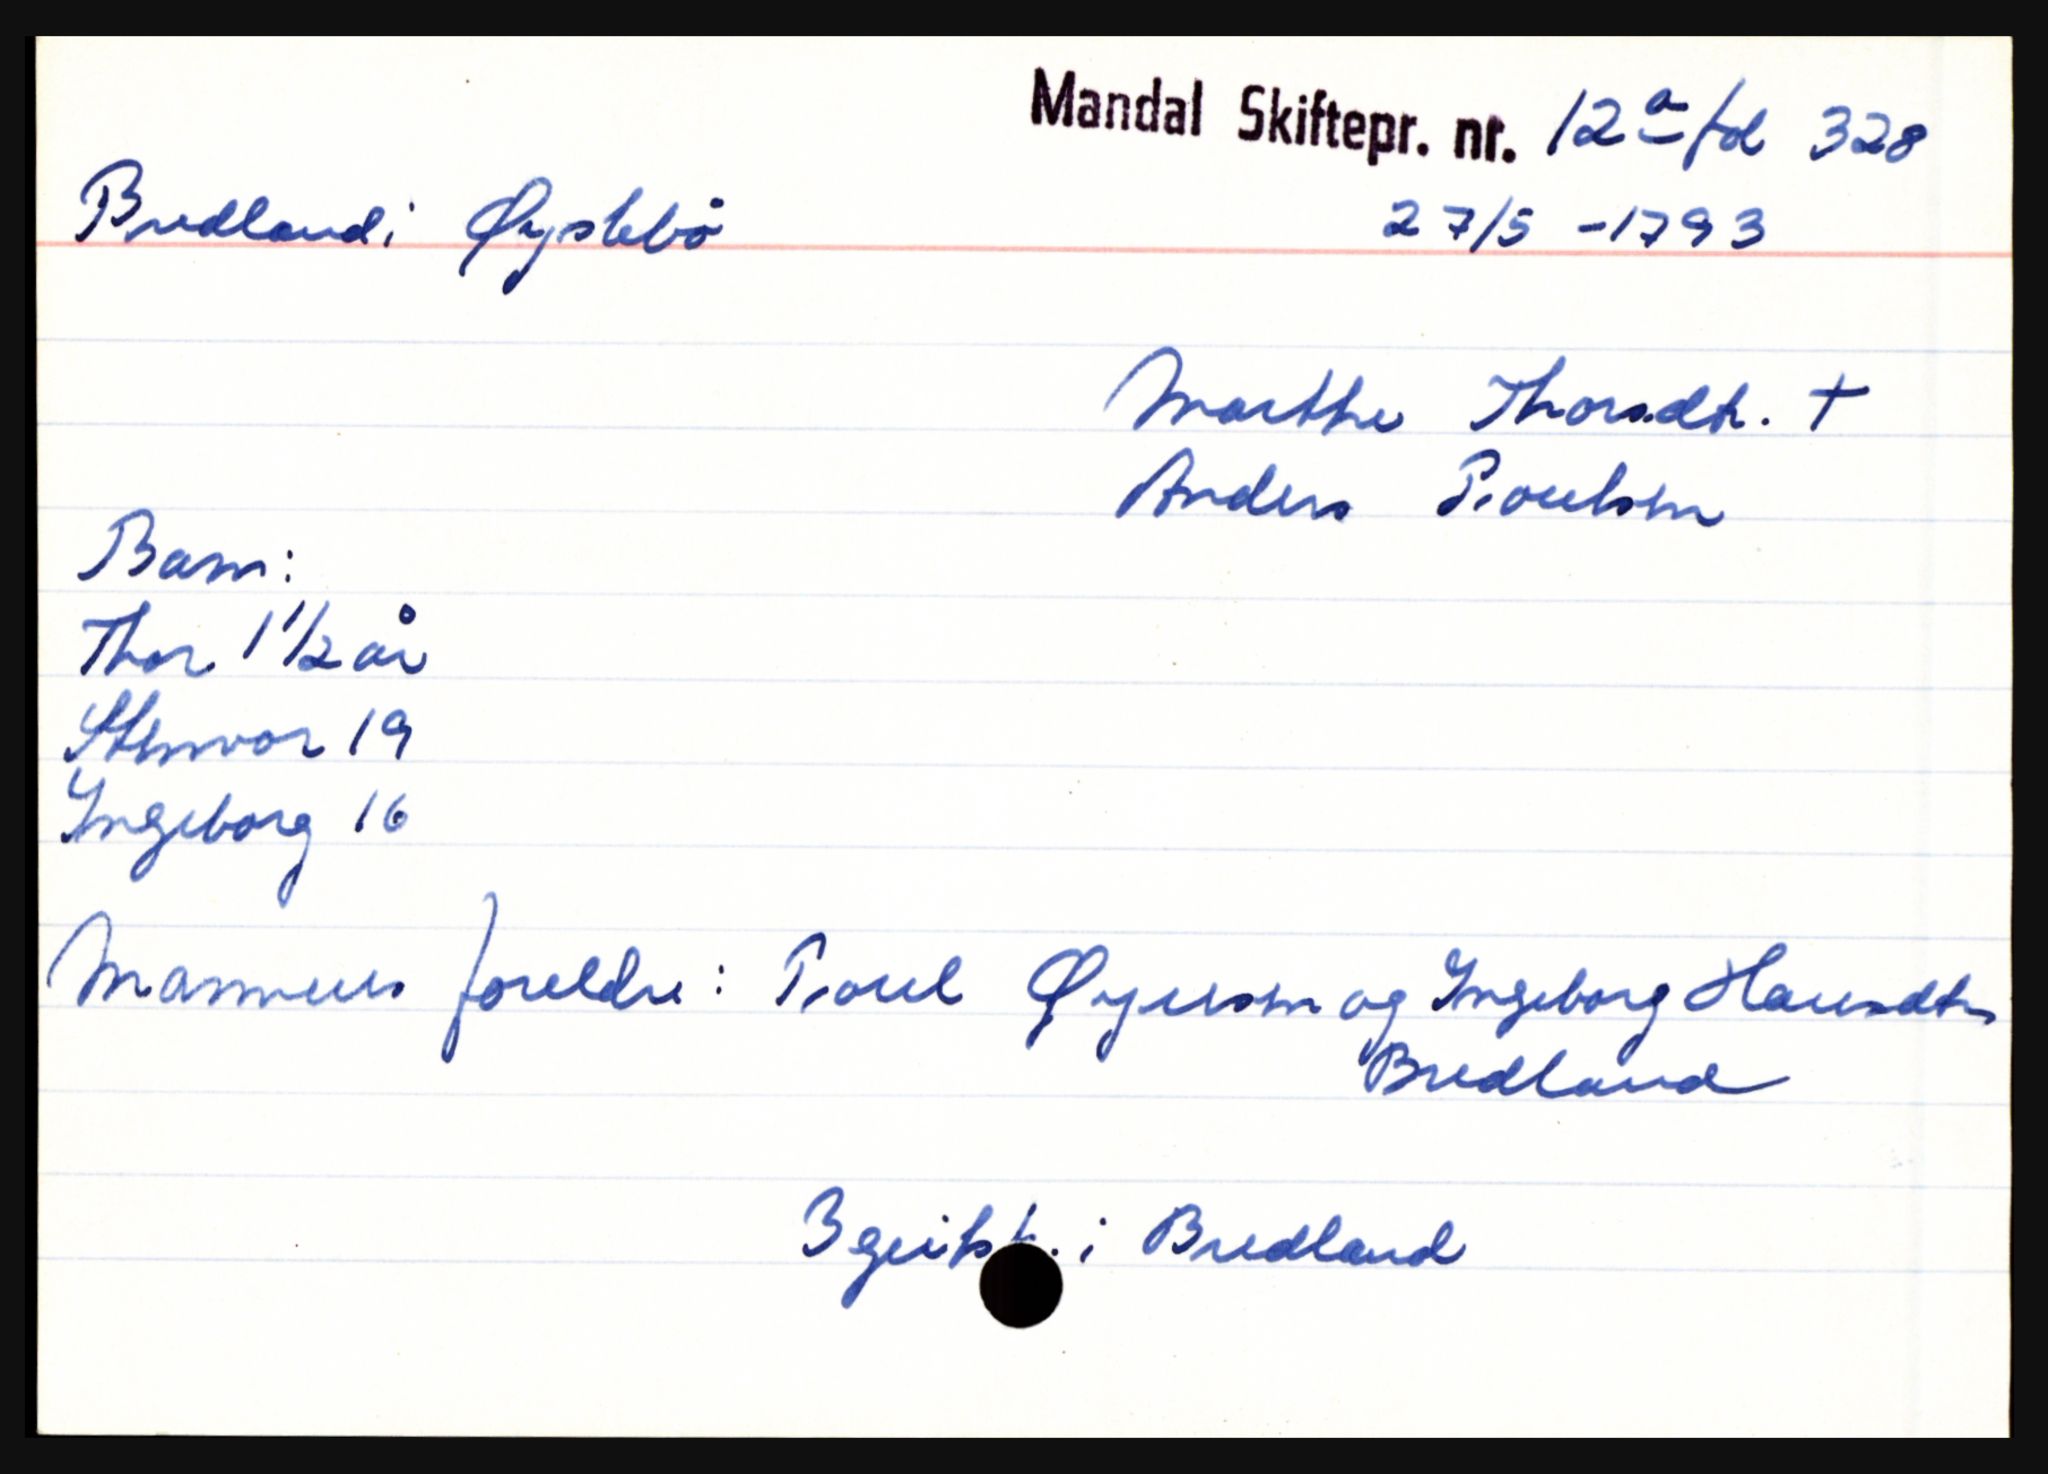 Mandal Skiftepr. nr. 12a fol 328
Bredland i Øyslebö 27/5 - 1793
Marthe Thorsdtr. †
Anders Poulsen
Barn:
Thor 1 1/2 år
Stenvor 19
Ingeborg 16
Mannens foreldre: Poul Øyusen og Ingeborg Hansdtr
Bredland
3 i Bredland